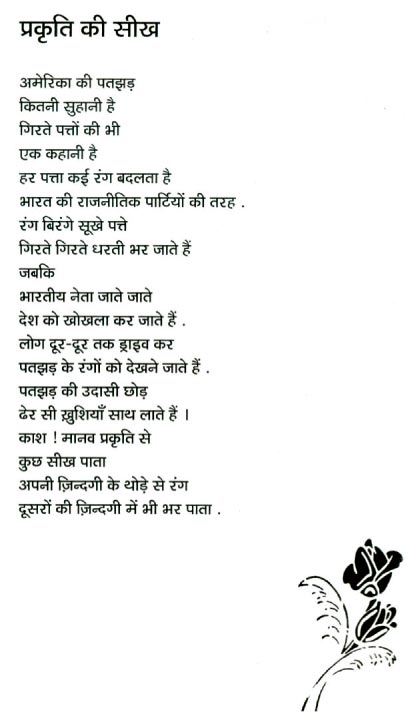 प्रकृति की सीख
अमेरिका की पतझड़
कितनी सुहानी है
गिरते पत्तों की भी
एक कहानी है
हर पत्ता कई रंग बदलता है
भारत की राजनीतिक पार्टियों की तरह .
रंग बिरंगे सूखे पत्ते
गिरते गिरते धरती भर जाते हैं
जबकि
भारतीय नेता जाते जाते
देश को खोखला कर जाते हैं .
लोग दूर-दूर तक ड्राइव कर
पतझड़ के रंगों को देखने जाते हैं .
पतझड़ की उदासी छोड़
ढेर सी ख़ुशियाँ साथ लाते हैं ।
काश ! मानव प्रकृति से
कुछ सीख पाता
अपनी ज़िन्दगी के थोड़े से रंग
दूसरों की ज़िन्दगी में भी भर पाता .